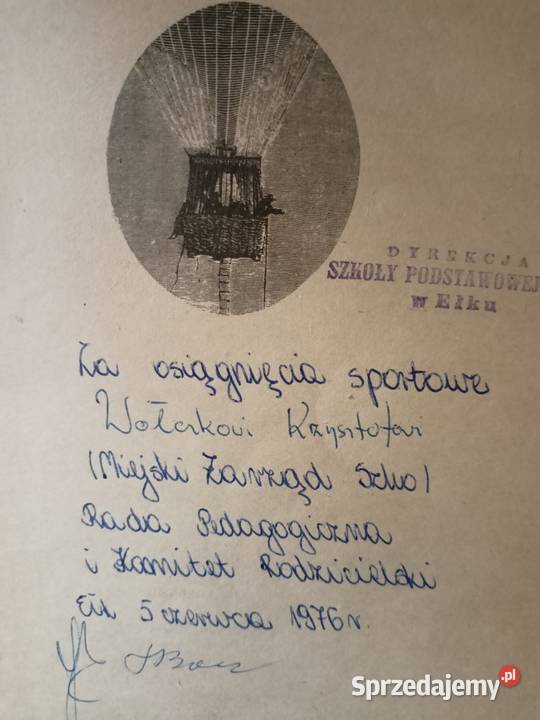 DYREKCJA
SZKOŁY PODSTAWOWEJ
w Ełku
Za osiągnięcia sportowe
Wołkowi Krzysztofowi
(Miejski Zarząd Szkół)
Rada Pedagogiczna
i Komitet Rodzicielski
Ełk 5 czerwca 1976 r.
Sprzedajemy.pl